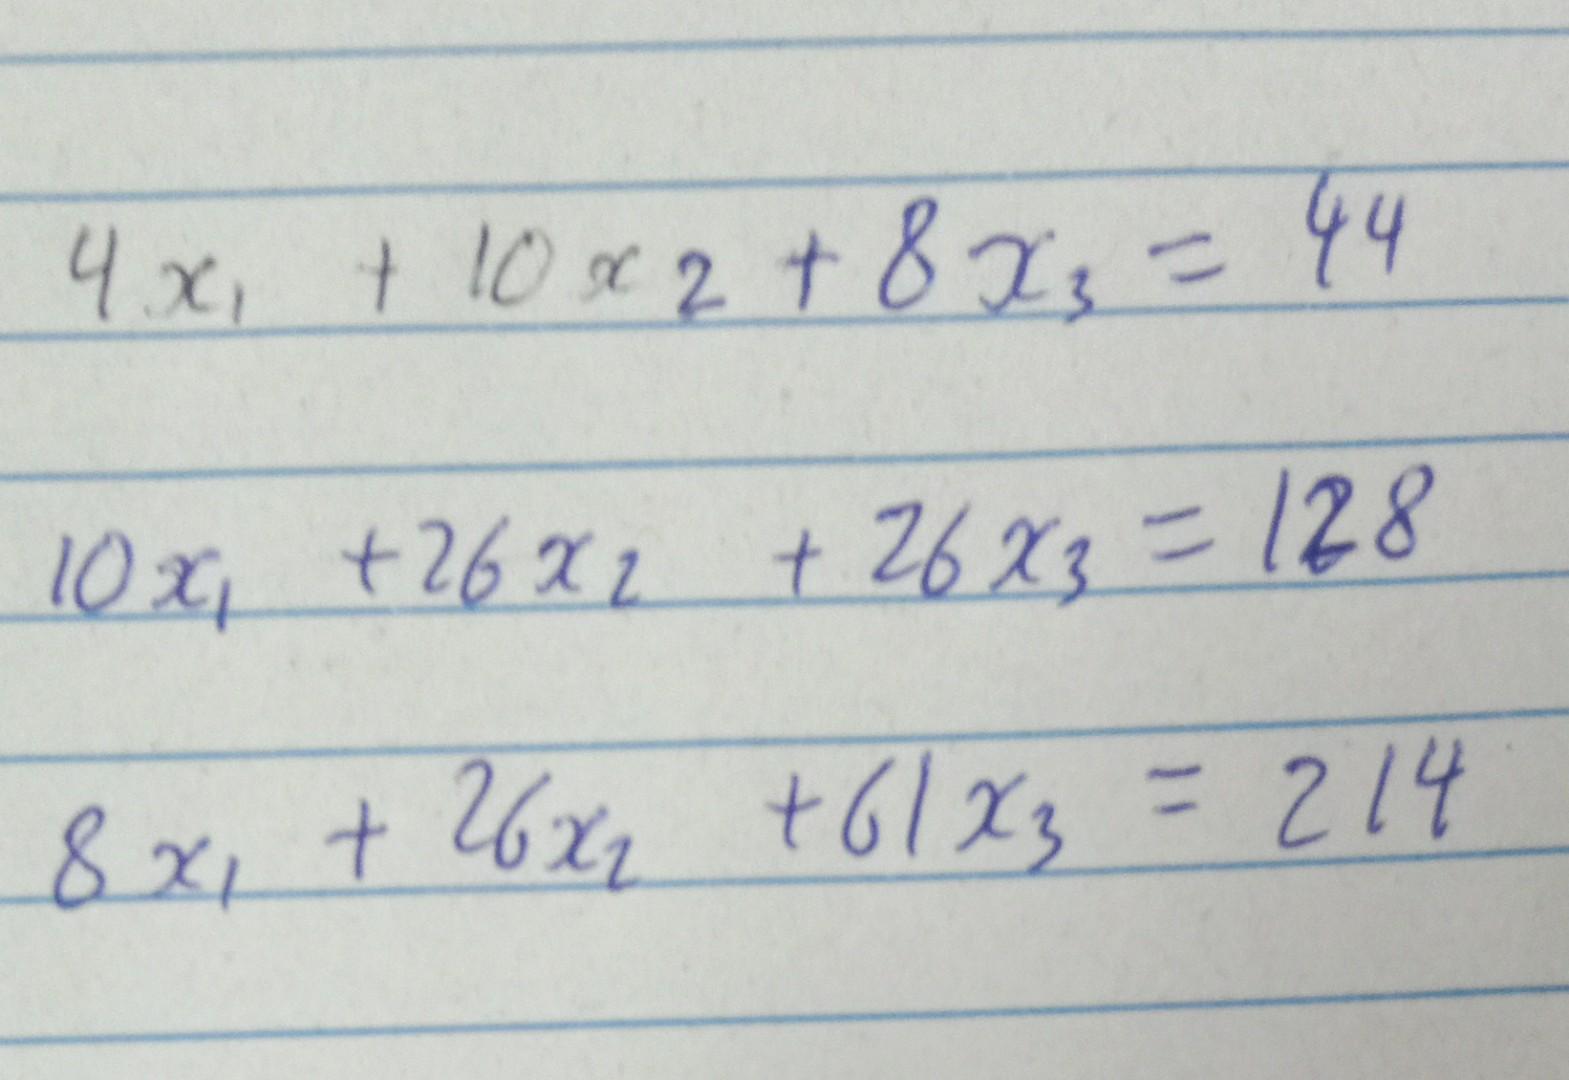 4x₁ + 10x₂ + 8x₃ = 44
10x₁ + 26x₂ + 26x₃ = 128
8x₁ + 26x₂ + 61x₃ = 214